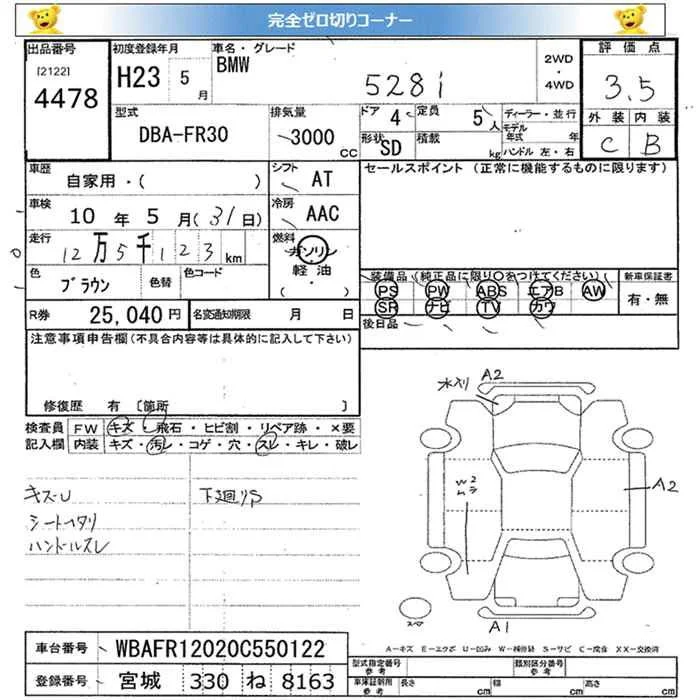 完全ゼロ切りコーナー
出品番号
[2122]
4478
初度登録年月
H23 5月
車名・グレード
BMW
528i
2WD
・
4WD
評価点
3.5
外装 内装
C B
型式
DBA-FR30
排気量
3000 CC
ドア 4
定員 5人
形状 SD
積載 kg
ディーラー・並行
モデル年式 年
ハンドル 左・右
車歴
自家用・( )
シフト AT
車検
10年 5月(31日)
冷房 AAC
走行
12万5千123km
燃料
ガソリン
軽油
( ・ )
色
ブラウン
色替
色コード
セールスポイント (正常に機能するものに限ります)
装備品 (純正品に限り○をつけてください)
PS PW ABS エアB AW
SR ナビ TV カワ
新車保証書
有・無
後日品
R券 25,040円
名変通知期限 月 日
注意事項申告欄(不具合内容等は具体的に記入して下さい)
修復歴 有 〔箇所 〕
検査員記入欄
FW キズ・飛石・ヒビ割・リペア跡・×要
内装 キズ・汚レ・コゲ・穴・スレ・キレ・破レ
キズU
シートヘタリ
ハンドルスレ
下廻りS
水入り
A2
W2
ムラ
A2
A1
スペア
A-キズ E-エクボ U-凹み W-補修跡 S-サビ C-腐食 XX-交換済
車台番号 WBAFR12020C550122
登録番号 宮城 330 ね 8163
型式指定番号
参考
類別区分番号
参考
車体計測用
参考
長さ cm
幅 cm
高さ cm